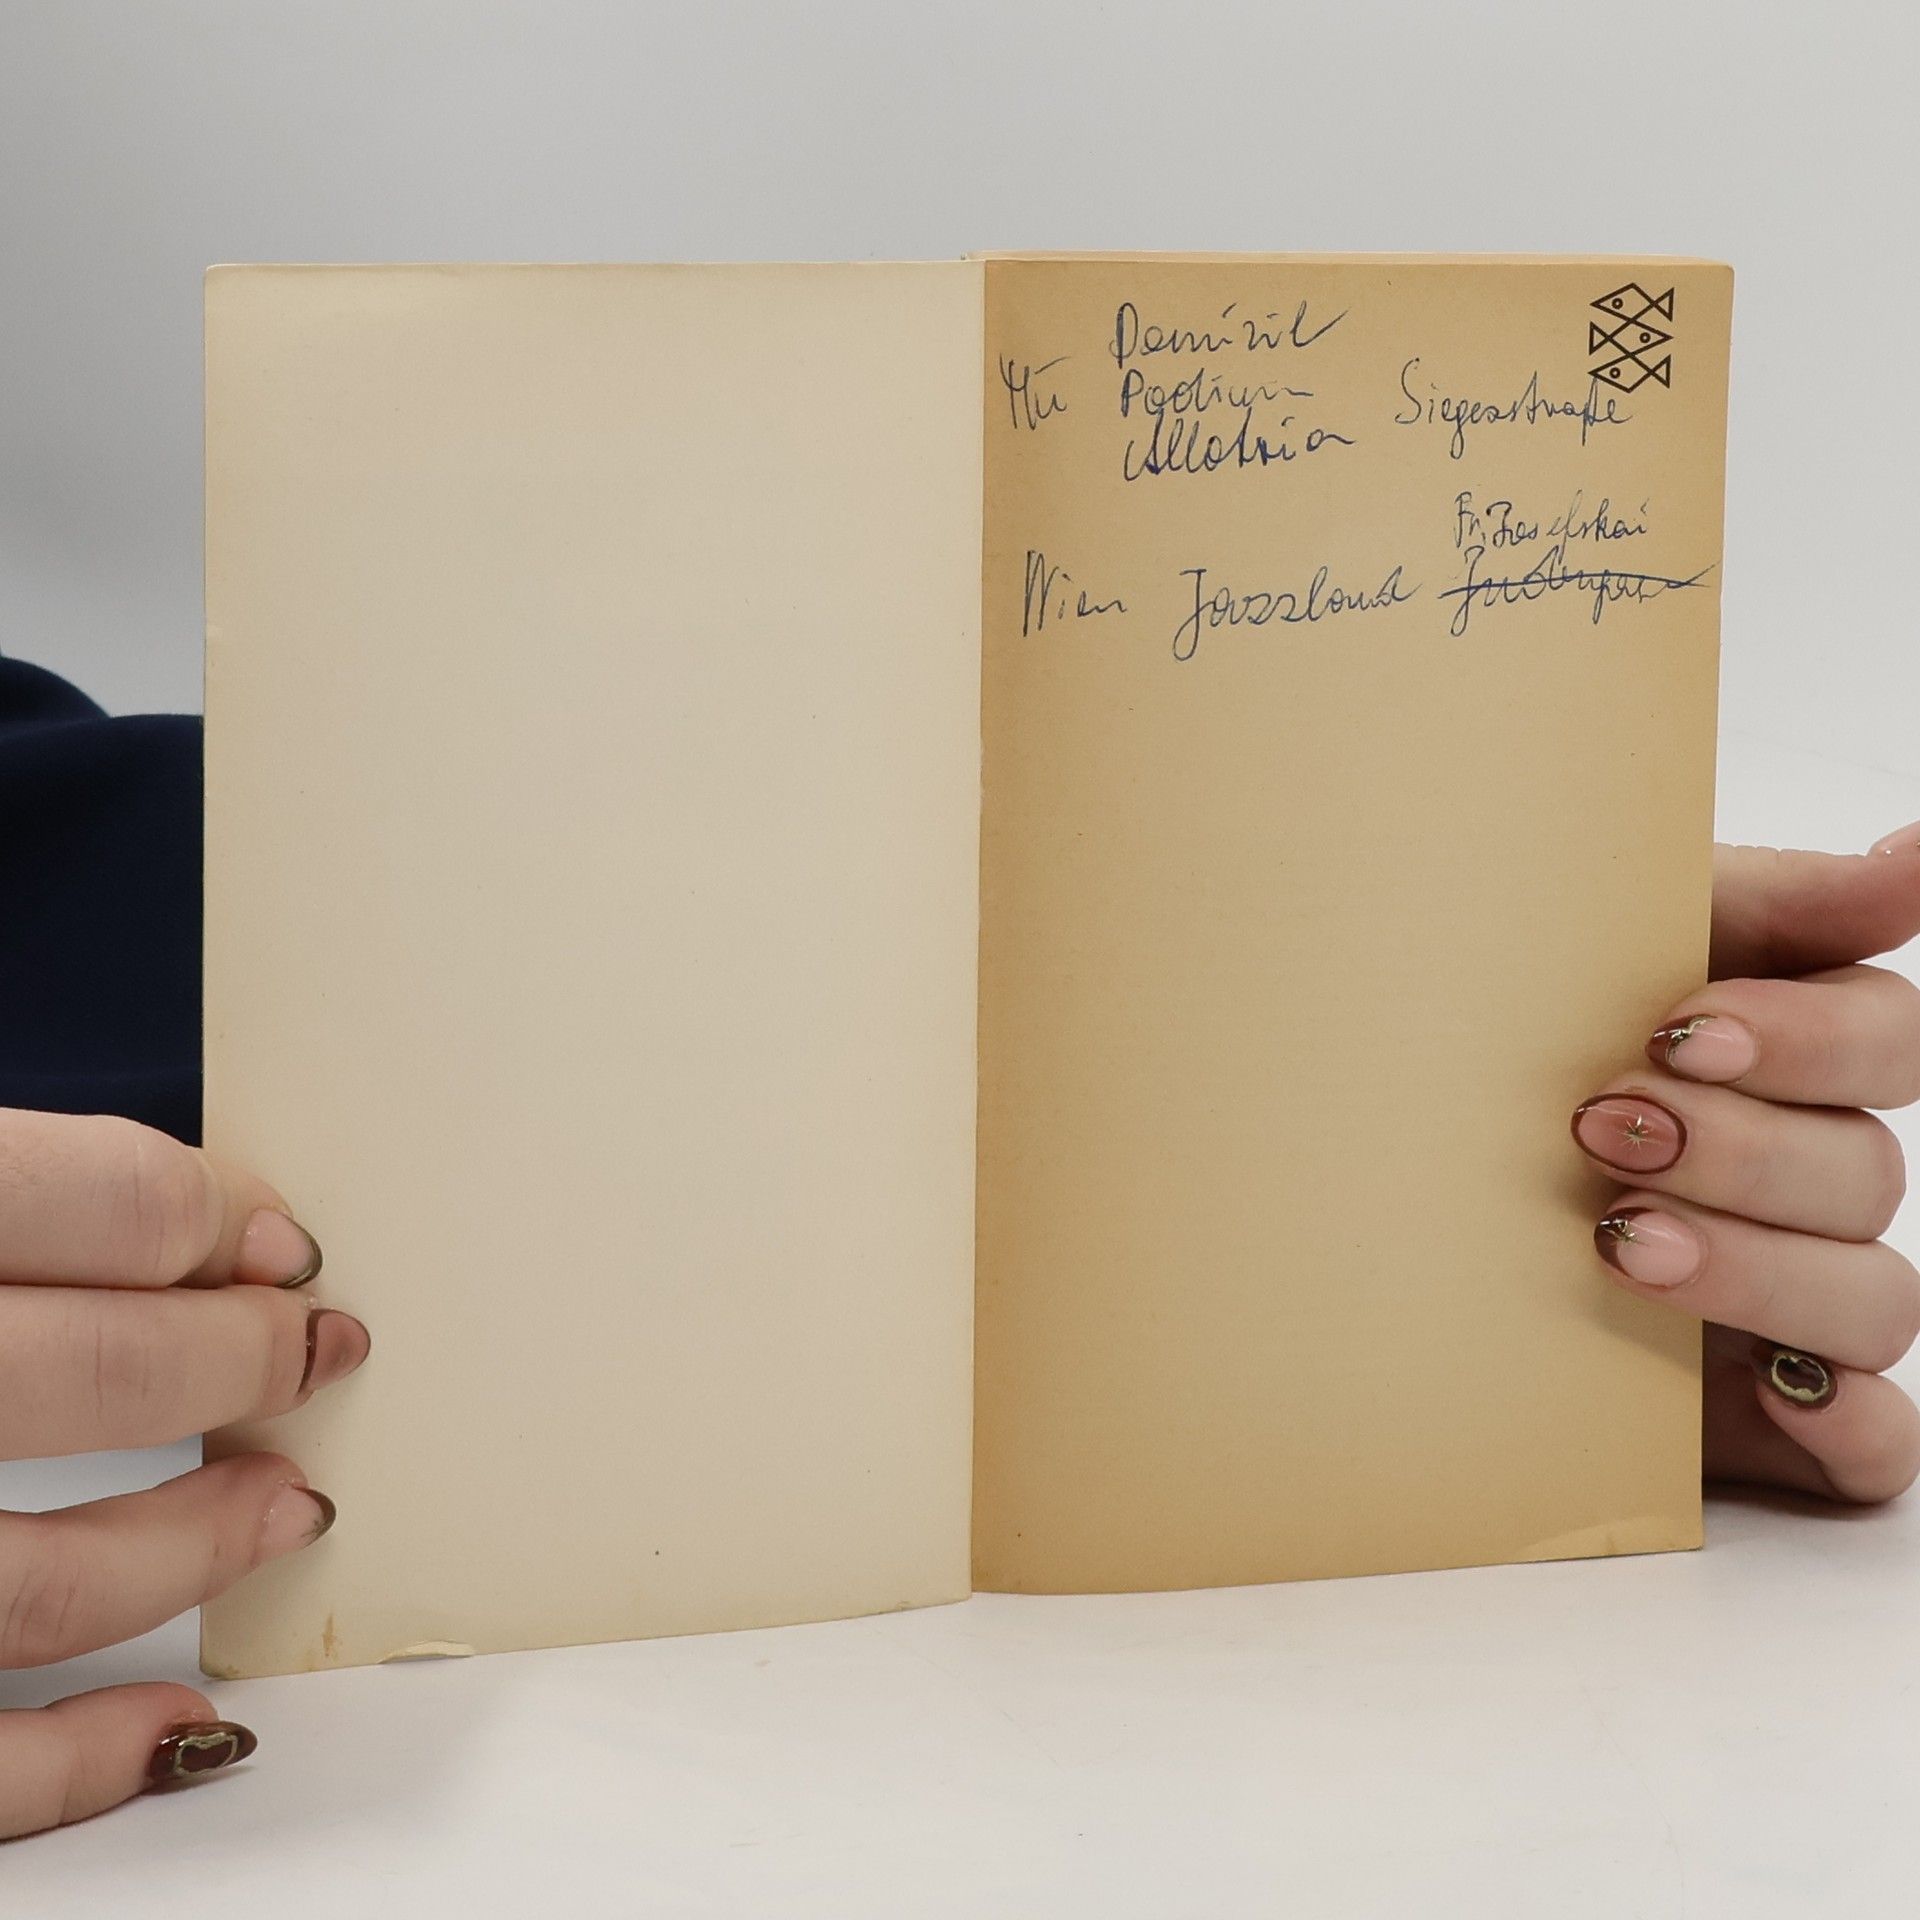 Domizil
Mü Podium Siegesstraße
Allotria
Fr. Josefskai
Wien Jazzland